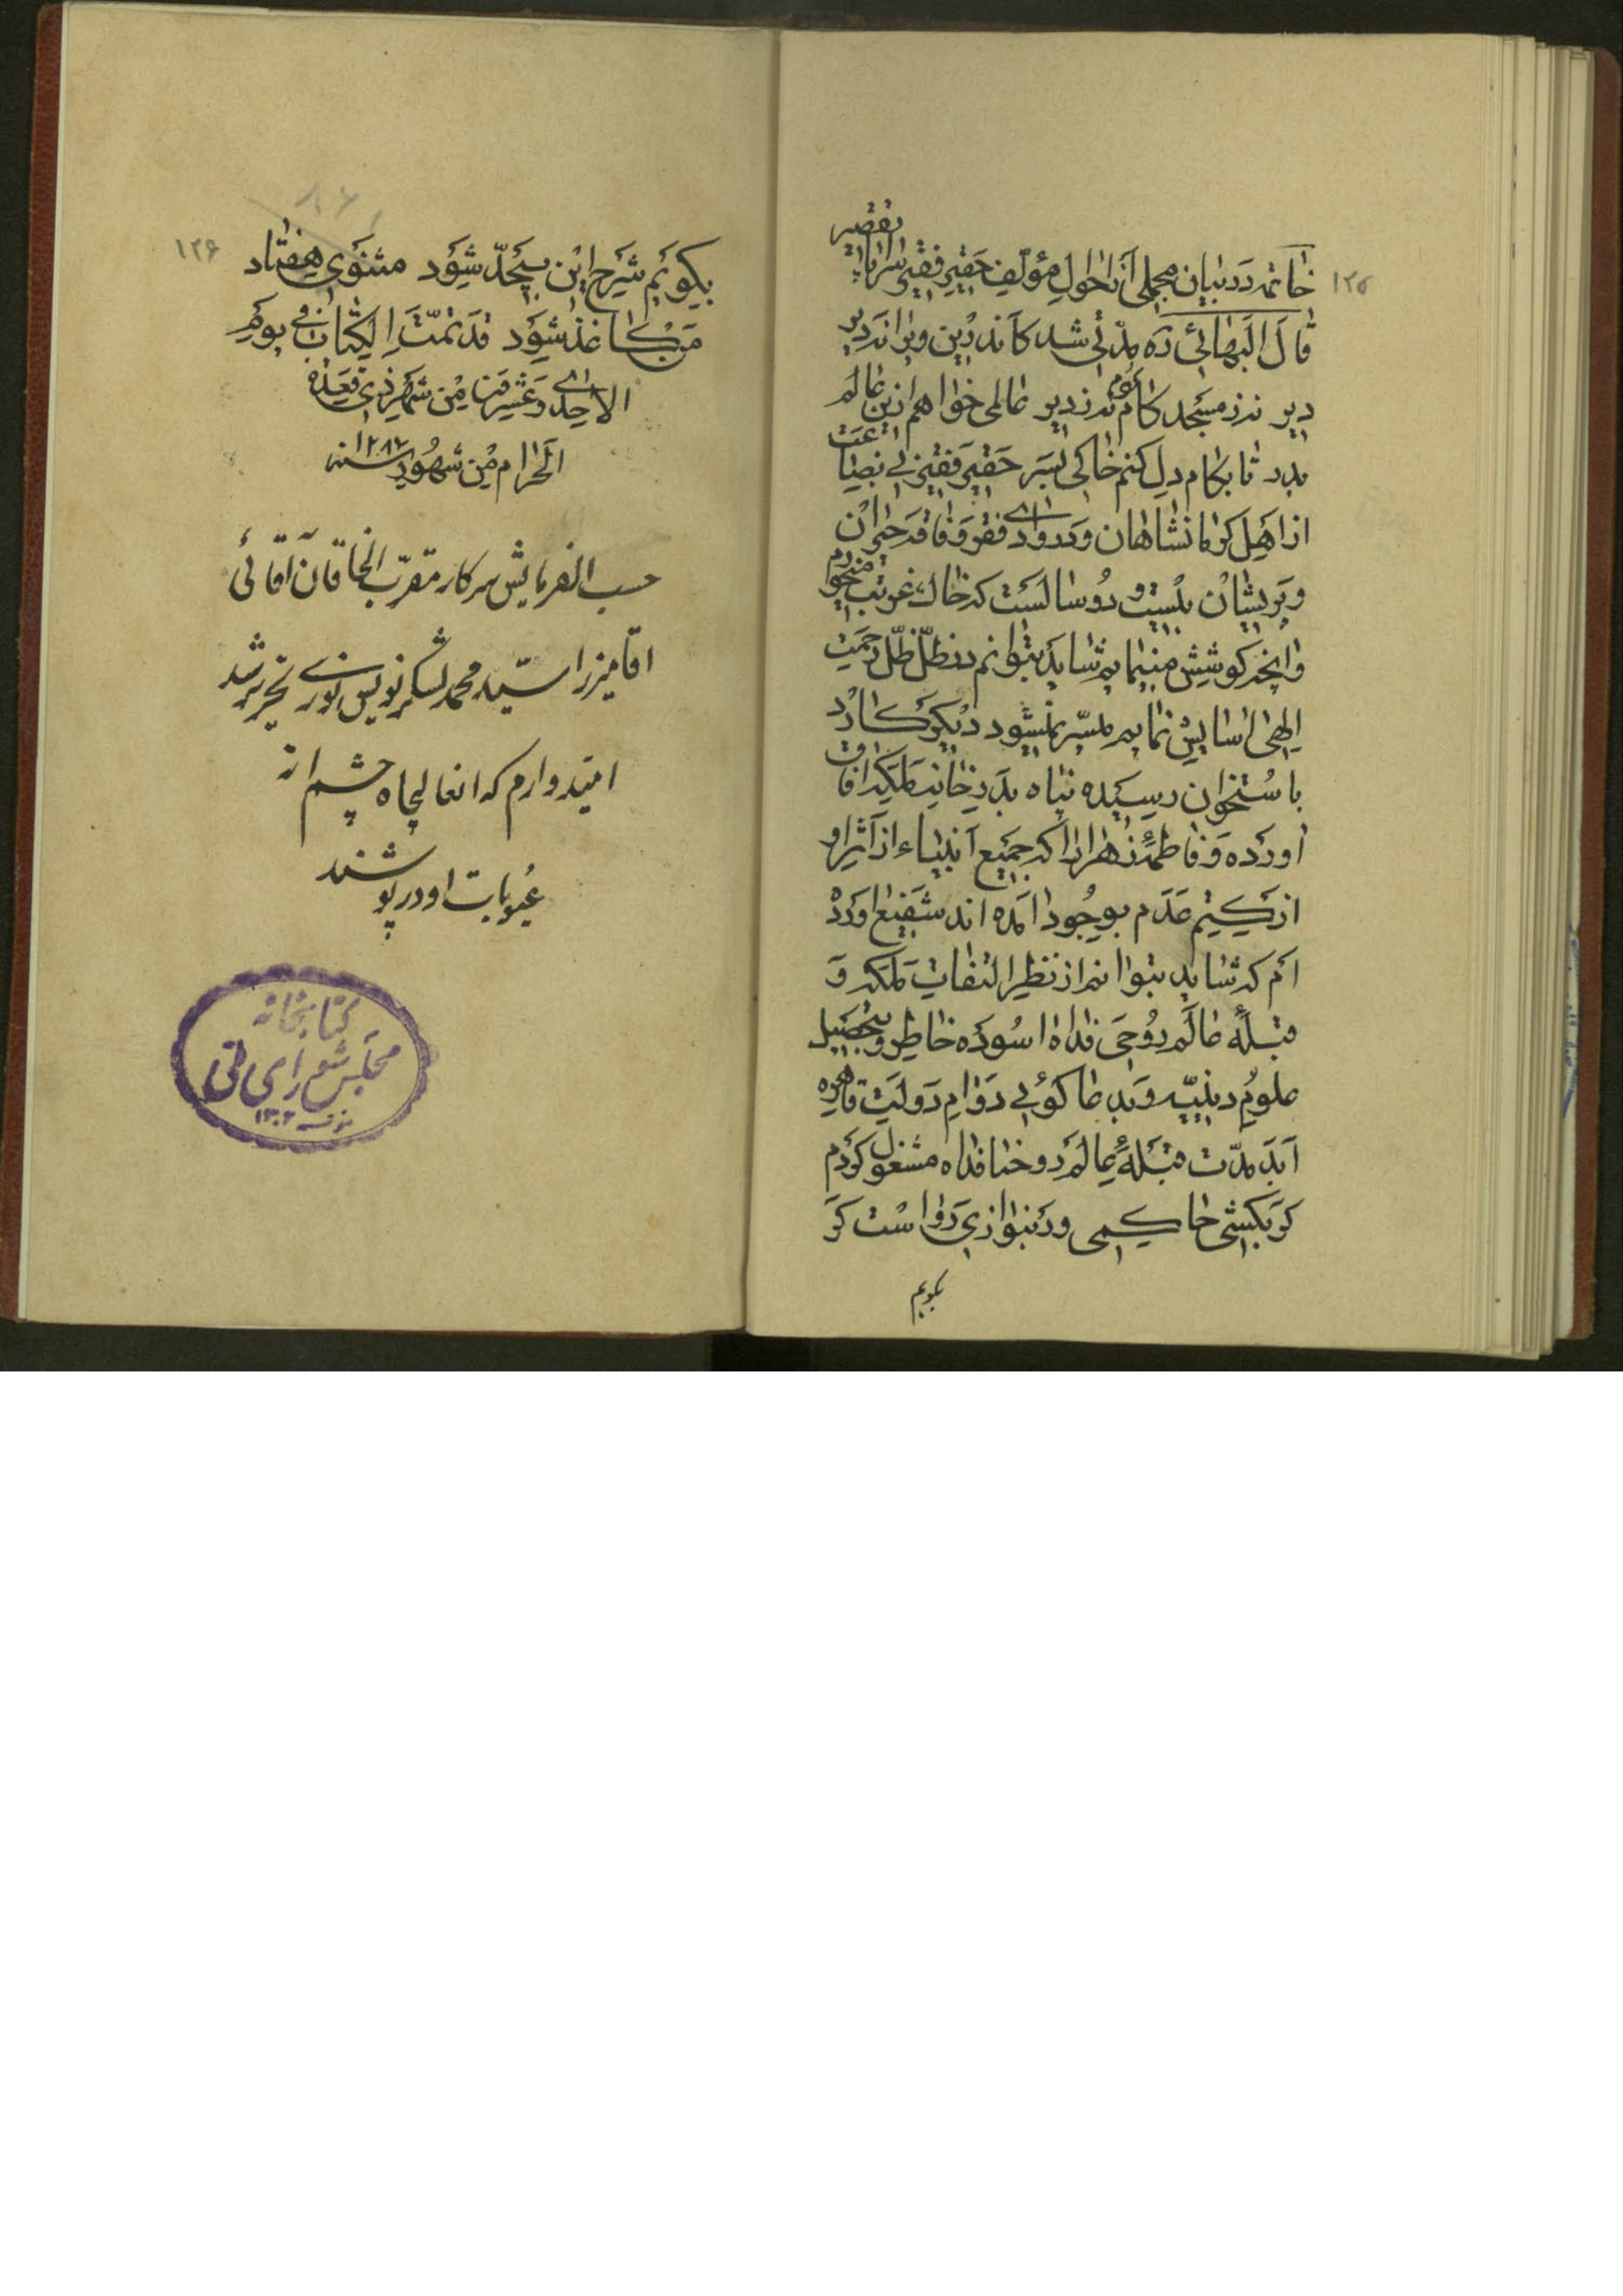 ۱۲۵
خاتمه در بیان مجملی از احوال مؤلف حقیر فقیر سراپا تقصیر
قال البهائی ره مدّتی شد کاندرین ویرانه دیر
دیر نذر مسجد کام نذر دیر عالمی خواهم ازین عالم
بدر تا بکام دل کنم خاکی بسر حقیر فقیر بی بضاعت
از اهل کرمانشاهان و در وادی فقر و فاقه حیران
و پریشان بیست و دو سالست که خاک غربت میخورم
و آنچه کوشش مینمایم شاید بتوانم در ظلّ ظلّ رحمت
الهی آسایش نمایم میسّر نمیشود دیگر کارد
باستخوان رسیده پناه بدر خانه ملکه آفاق
آورده و فاطمه زهرا را که جمیع انبیاء از اثر او
از کتم عدم بوجود آمده اند شفیع آورده
ام که شاید بتوانم از نظر التفات ملکه و
قبلهٔ عالم روحی فداه آسوده خاطر بتحصیل
علوم دینیّه و بدعا گوئی دوام دولت قاهره
ابد مدّت قبلهٔ عالم روحنا فداه مشغول گردم
گر بکشی حاکمی ور بنوازی رواست گر
بگویم
۱۲۶
بگویم شرح این بیحدّ شود مثنوی هفتاد
من کاغذ شود قد تمّت الکتاب فی یوم
الاحدی و عشرین من شهر ذی قعده
الحرام من شهور سنه ۱۲۸۷
حسب الفرمایش سرکار مقرّب الخاقان آقائی
آقا میرزا سیّد محمد لشکرنویس نوری تحریر شد
امّیدوارم که انعالیجاه چشم از
عیوبات او در پوشند
کتابخانه
مجلس شورای ملی
۱۳۰۲